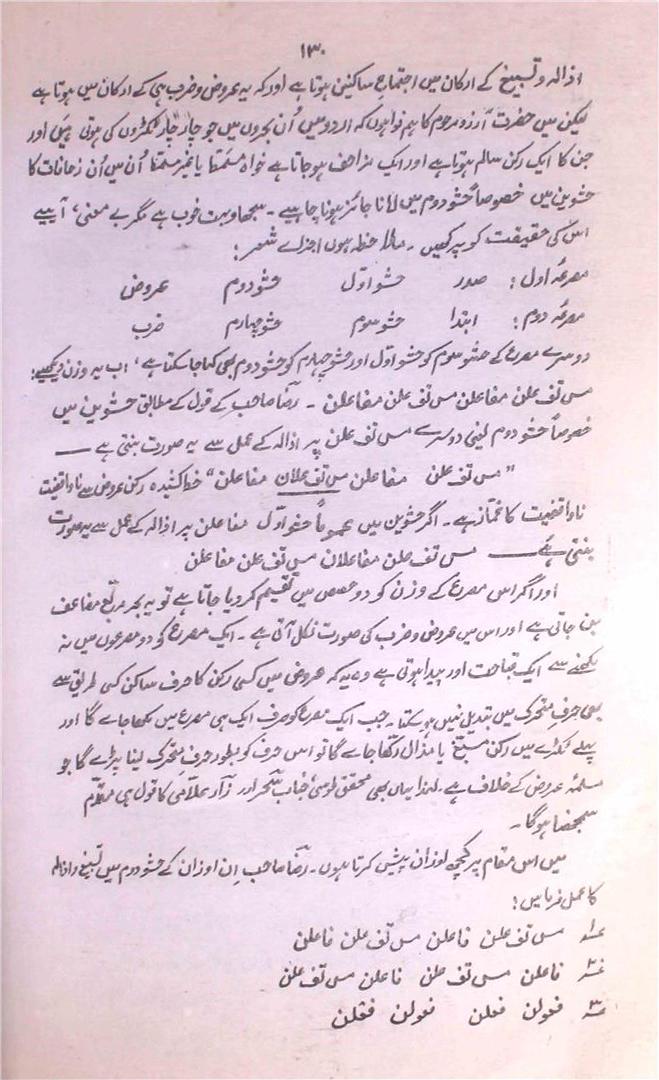 ۱۳۰
اذالہ و تسبیغ کے ارکان میں اجتماعِ ساکنین ہوتا ہے اور کہ یہ عروض و ضرب ہی کے ارکان میں ہوتا ہے
لیکن میں حضرت آرزو مرحوم کا ہم نوا ہوں کہ اردو میں اُن بحروں میں جو چار چار ٹکڑوں کی ہوتی ہیں اور
جن کا ایک رکن سالم ہوتا ہے اور ایک مزاحف ہو جاتا ہے خواہ مثمنا یا غیر مثمنا اُن میں اُن زحافات کا
حشوین میں خصوصاً حشو دوم میں لانا جائز ہونا چاہیے ۔ سجھاو بہت خوب ہے مگر بے معنی ، آیئے
اس کی حقیقت کو پرکھیں ۔ ملاحظہ ہوں اجزائے شعر :
مصرعہ اول : صدر حشو اوّل حشو دوم عروض
مصرعہ دوم : ابتدا حشو سوم حشو چہارم ضرب
دوسرے مصرع کے حشو سوم کو حشو اوّل اور حشو چہارم کو حشو دوم بھی کہا جا سکتا ہے ، اب یہ وزن دیکھیے :
مس تف علن مفاعلن مس تف علن مفاعلن ۔ رضا صاحب کے قول کے مطابق حشوین میں
خصوصاً حشو دوم یعنی دوسرے مس تف علن پر اذالہ کے عمل سے یہ صورت بنتی ہے ——
" مس تف علن مفاعلن مس تف علان مفاعلن " خط کشیدہ رکن عروض سے ناواقفیت
ناواقفیت کا غماز ہے ۔ اگر حشوین میں عموماً حشو اوّل مفاعلن پر اذالہ کے عمل سے یہ صورت
بنتی ہے —— مس تف علن مفاعلان مس تف علن مفاعلن
اور اگر اس مصرع کے وزن کو دو حصص میں تقسیم کر دیا جاتا ہے تو یہ بحر مربع مضاعف
بن جاتی ہے اور اس میں عروض و ضرب کی صورت نکل آتی ہے ۔ ایک مصرع کو دو مصرعوں میں نہ
لکھنے سے ایک قباحت اور پیدا ہوتی ہے وہ یہ کہ عروض میں کسی رکن کا حرف ساکن کسی طریق سے
بھی حرف متحرک میں تبدیل نہیں ہو سکتا ۔ جب ایک مصرع کو صرف ایک ہی مصرع میں لکھا جائے گا اور
پہلے ٹکڑے میں رکن مسبّغ یا مذال رکھا جائے گا تو اس حرف کو بطور حرف متحرک لینا پڑے گا جو
مسلمہ عروض کے خلاف ہے ۔ لہذا یہاں بھی محقق طوسی ، جناب سحر اور زار علامی کا قول ہی مقدّم
سمجھنا ہوگا ۔
میں اس مقام پر کچھ اوزان پیش کرتا ہوں ۔ رضا صاحب اِن اوزان کے حشو دوم میں تسبیغ و اذالہ
کا عمل فرمائیں :
۱ مس تف علن فاعلن مس تف علن فاعلن
۲ فاعلن مس تف علن فاعلن مس تف علن
۳ فعولن فعلن فعولن فعلن